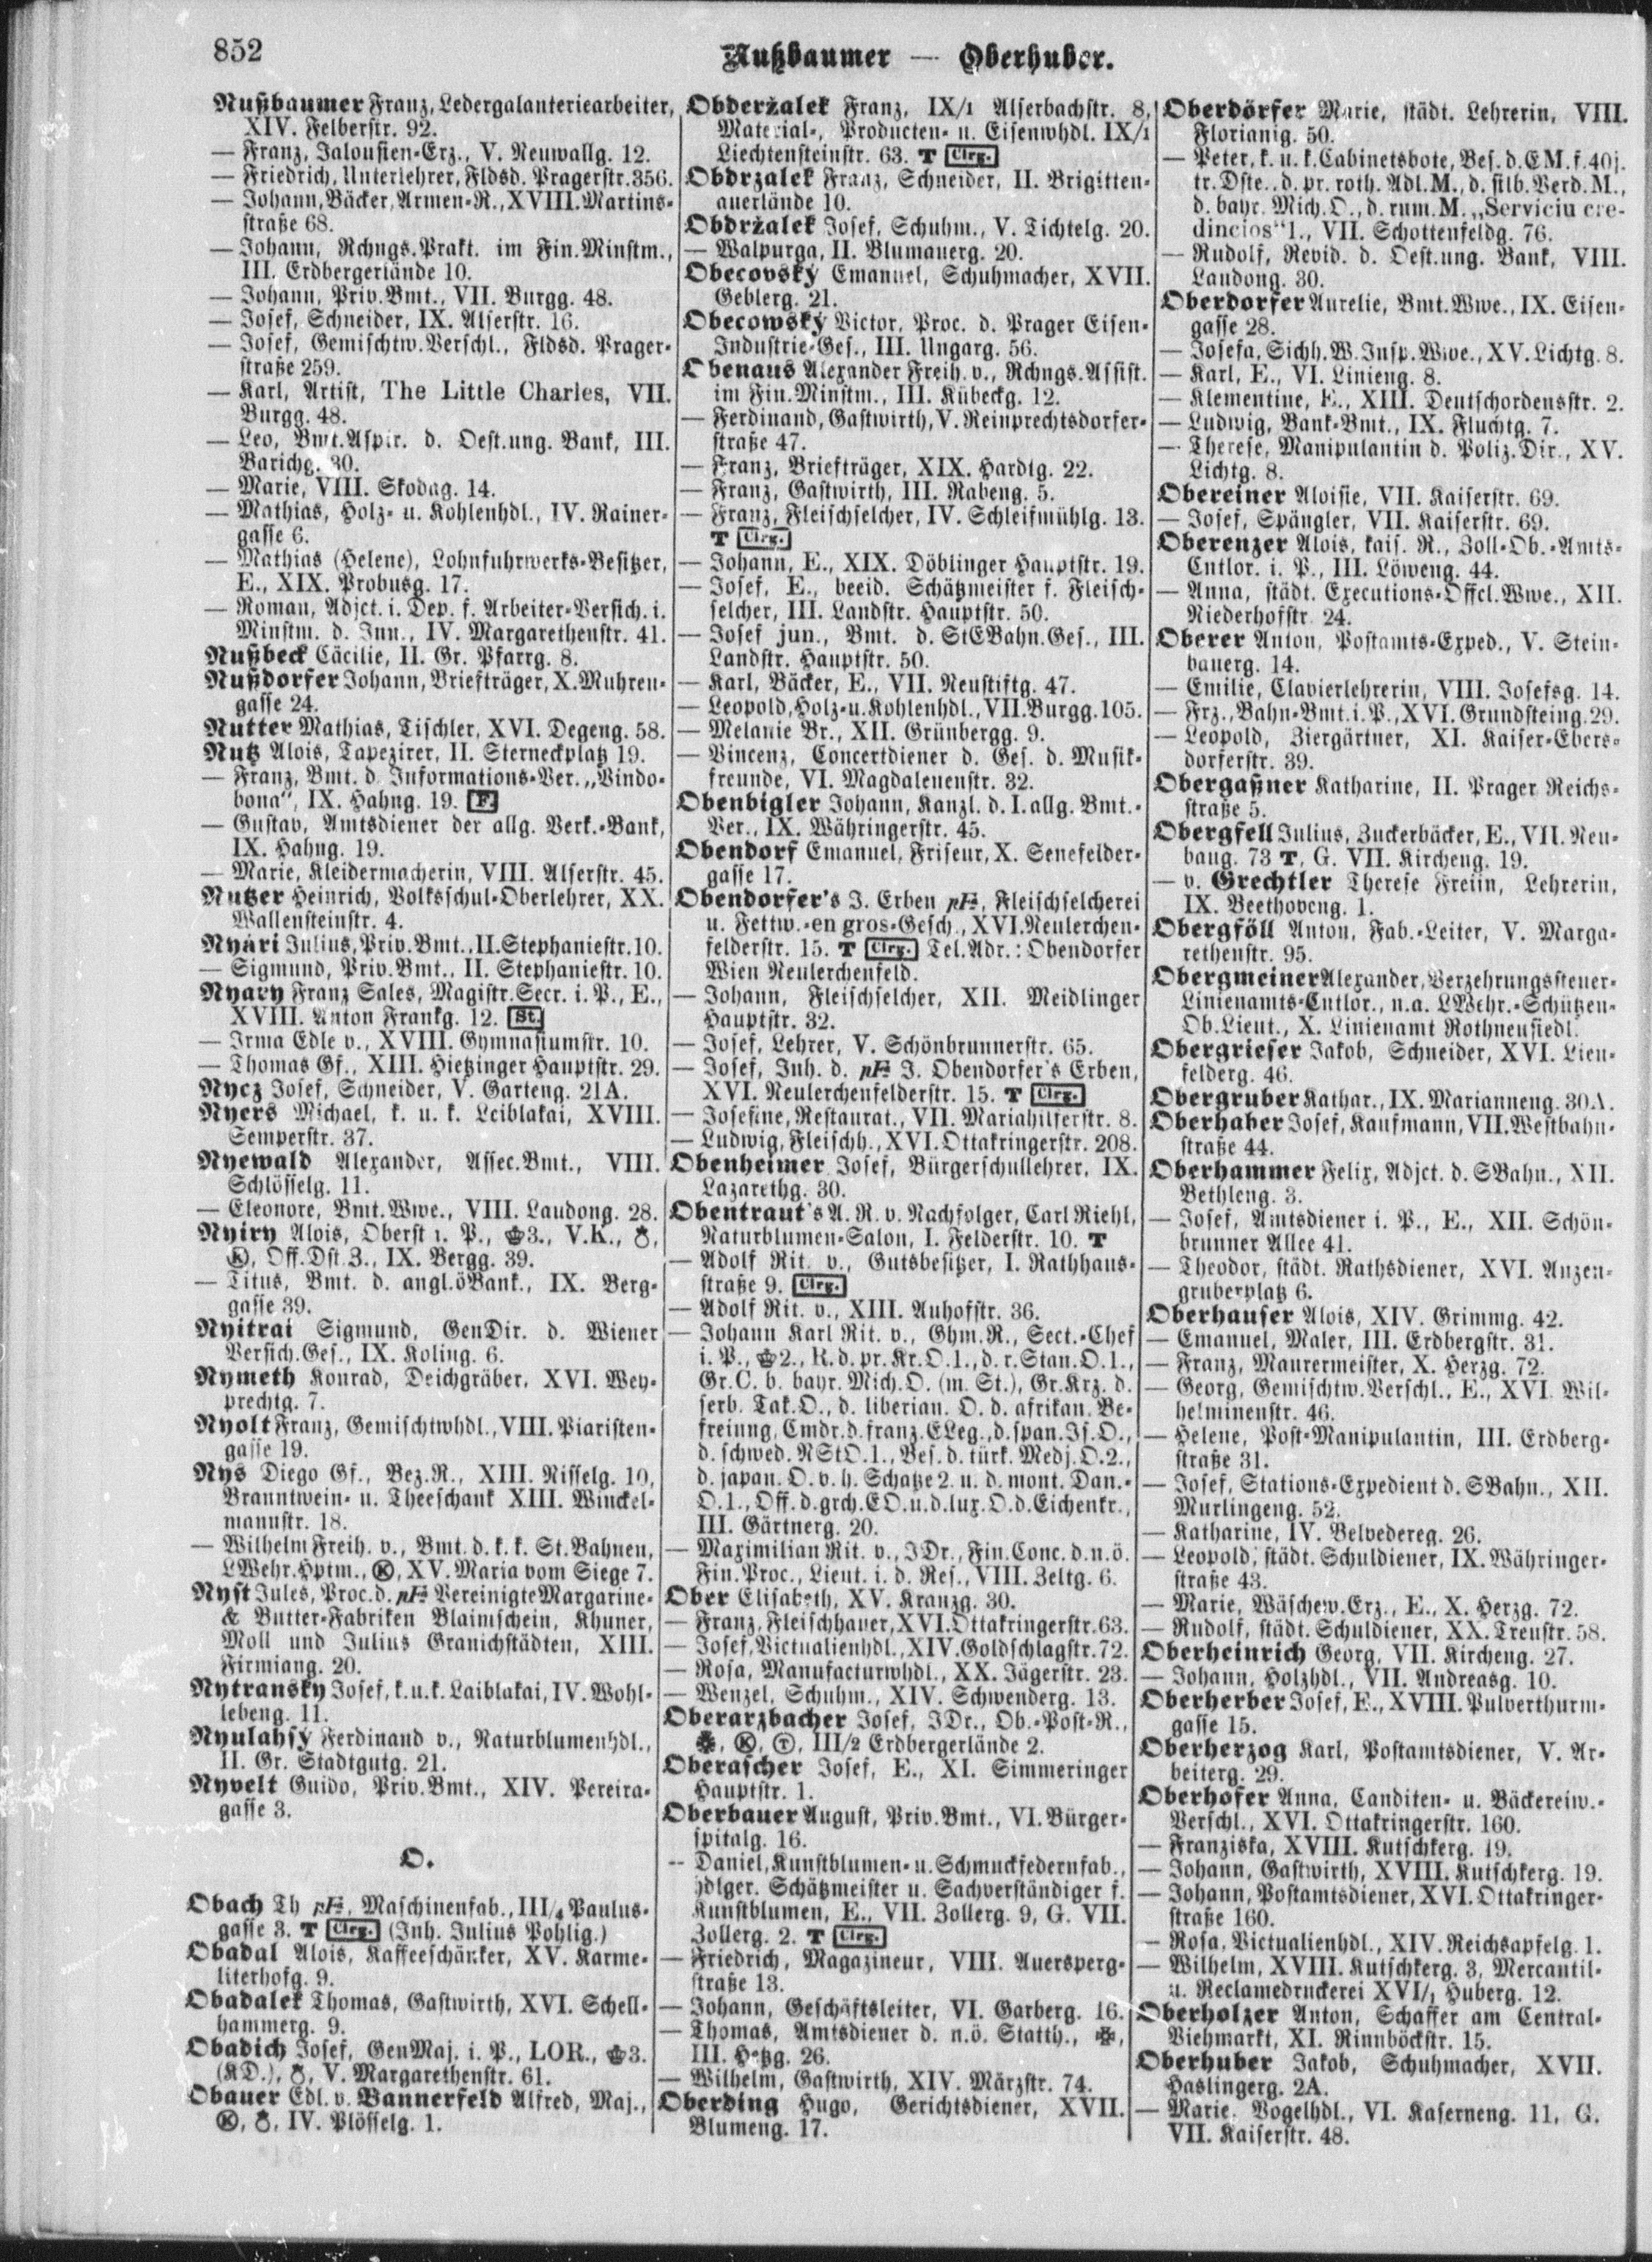 852
Nußbaumer — Oberhuber.
Nußbaumer Franz, Ledergalanteriearbeiter,
XIV. Felberstr. 92.
— Franz, Jalousien-Erz., V. Neuwallg. 12.
— Friedrich, Unterlehrer, Fldsd. Pragerstr. 356.
— Johann, Bäcker, Armen-R., XVIII. Martins-
straße 68.
— Johann, Rchngs.Prakt. im Fin.Minstm.,
III. Erdbergerlände 10.
— Johann, Priv.Bmt., VII. Burgg. 48.
— Josef, Schneider, IX. Alserstr. 16.
— Josef, Gemischtw.Verschl., Fldsd. Prager-
straße 259.
— Karl, Artist, The Little Charles, VII.
Burgg. 48.
— Leo, Bmt.Aspir. d. Oest.ung. Bank, III.
Barichg. 30.
— Marie, VIII. Skodag. 14.
— Mathias, Holz- u. Kohlenhdl., IV. Rainer-
gasse 6.
— Mathias (Helene), Lohnfuhrwerks-Besitzer,
E., XIX. Probusg. 17.
— Roman, Adjct. i. Dep. f. Arbeiter-Versich. i.
Minstm. d. Inn., IV. Margarethenstr. 41.
Nußbeck Cäcilie, II. Gr. Pfarrg. 8.
Nußdorfer Johann, Briefträger, X. Muhren-
gasse 24.
Nutter Mathias, Tischler, XVI. Degeng. 58.
Nutz Alois, Tapezirer, II. Sterneckplatz 19.
— Franz, Bmt. d. Informations-Ver. „Vindo-
bona“, IX. Hahng. 19. F.
— Gustav, Amtsdiener der allg. Verk.-Bank,
IX. Hahng. 19.
— Marie, Kleidermacherin, VIII. Alserstr. 45.
Nutzer Heinrich, Volksschul-Oberlehrer, XX.
Wallensteinstr. 4.
Nyári Julius, Priv.Bmt., II. Stephaniestr. 10.
— Sigmund, Priv.Bmt., II. Stephaniestr. 10.
Nyary Franz Sales, Magistr.Secr. i. P., E.,
XVIII. Anton Frankg. 12. St.
— Irma Edle v., XVIII. Gymnasiumstr. 10.
— Thomas Gf., XIII. Hietzinger Hauptstr. 29.
Nycz Josef, Schneider, V. Garteng. 21A.
Nyers Michael, k. u. k. Leiblakai, XVIII.
Semperstr. 37.
Nyewald Alexander, Assec.Bmt., VIII.
Schlösselg. 11.
— Eleonore, Bmt.Wwe., VIII. Laudong. 28.
Nyiry Alois, Oberst i. P., 3., V.K.,
Ⓚ, Off.Dst 3., IX. Bergg. 39.
— Titus, Bmt. d. angl.öBank., IX. Berg-
gasse 39.
Nyitrai Sigmund, GenDir. d. Wiener
Versich.Ges., IX. Koling. 6.
Nymeth Konrad, Deichgräber, XVI. Wey-
prechtg. 7.
Nyolt Franz, Gemischtwhdl., VIII. Piaristen-
gasse 19.
Nys Diego Gf., Bez.R., XIII. Nisselg. 10,
Branntwein- u. Theeschank XIII. Winckel-
mannstr. 18.
— Wilhelm Freih. v., Bmt. d. k. k. St.Bahnen,
LWehr.Hptm., Ⓚ, XV. Maria vom Siege 7.
Nyst Jules, Proc. d. pF. Vereinigte Margarine-
& Butter-Fabriken Blaimschein, Khuner,
Moll und Julius Granichstädten, XIII.
Firmiang. 20.
Nytransky Josef, k.u.k. Laiblakai, IV. Wohl-
lebeng. 11.
Nyulahsy Ferdinand v., Naturblumenhdl.,
II. Gr. Stadtgutg. 21.
Nyvelt Guido, Priv.Bmt., XIV. Pereira-
gasse 3.
O.
Obach Th pF., Maschinenfab., III/4 Paulus-
gasse 3. T Clrg. (Inh. Julius Pohlig.)
Obadal Alois, Kaffeeschänker, XV. Karme-
literhofg. 9.
Obadalek Thomas, Gastwirth, XVI. Schell-
hammerg. 9.
Obadich Josef, GenMaj. i. P., LOR., 3.
(KD.), V. Margarethenstr. 61.
Obauer Edl. v. Bannerfeld Alfred, Maj.,
Ⓚ, IV. Plösselg. 1.
Obderžalek Franz, IX/1 Alserbachstr. 8,
Material-, Producten- u. Eisenwhdl. IX/1
Liechtensteinstr. 63. T Clrg.
Obdrzalek Franz, Schneider, II. Brigitten-
auerlände 10.
Obdržalek Josef, Schuhm., V. Tichtelg. 20.
— Walpurga, II. Blumauerg. 20.
Obecovský Emanuel, Schuhmacher, XVII.
Geblerg. 21.
Obecowský Victor, Proc. d. Prager Eisen-
Industrie-Ges., III. Ungarg. 56.
Obenaus Alexander Freih. v., Rchngs.Assist.
im Fin.Minstm., III. Kübeckg. 12.
— Ferdinand, Gastwirth, V. Reinprechtsdorfer-
straße 47.
— Franz, Briefträger, XIX. Hardtg. 22.
— Franz, Gastwirth, III. Rabeng. 5.
— Franz, Fleischselcher, IV. Schleifmühlg. 13.
T Clrg.
— Johann, E., XIX. Döblinger Hauptstr. 19.
— Josef, E., beeid. Schätzmeister f. Fleisch-
selcher, III. Landstr. Hauptstr. 50.
— Josef jun., Bmt. d. StEBahn.Ges., III.
Landstr. Hauptstr. 50.
— Karl, Bäcker, E., VII. Neustiftg. 47.
— Leopold, Holz- u. Kohlenhdl., VII. Burgg. 105.
— Melanie Br., XII. Grünbergg. 9.
— Vincenz, Concertdiener d. Ges. d. Musik-
freunde, VI. Magdalenenstr. 32.
Obenbigler Johann, Kanzl. d. I. allg. Bmt.-
Ver., IX. Währingerstr. 45.
Obendorf Emanuel, Friseur, X. Senefelder-
gasse 17.
Obendorfer's J. Erben pF., Fleischselcherei
u. Fettw.-en gros-Gesch., XVI. Neulerchen-
felderstr. 15. T Clrg. Tel.Adr.: Obendorfer
Wien Neulerchenfeld.
— Johann, Fleischselcher, XII. Meidlinger
Hauptstr. 32.
— Josef, Lehrer, V. Schönbrunnerstr. 65.
— Josef, Inh. d. pF. J. Obendorfer's Erben,
XVI. Neulerchenfelderstr. 15. T Clrg.
— Josefine, Restaurat., VII. Mariahilferstr. 8.
— Ludwig, Fleischh., XVI. Ottakringerstr. 208.
Obenheimer Josef, Bürgerschullehrer, IX.
Lazarethg. 30.
Obentraut's A. R. v. Nachfolger, Carl Riehl,
Naturblumen-Salon, I. Felderstr. 10. T
— Adolf Rit. v., Gutsbesitzer, I. Rathhaus-
straße 9. Clrg.
— Adolf Rit. v., XIII. Auhofstr. 36.
— Johann Karl Rit. v., Ghm.R., Sect.-Chef
i. P., 2., R. d. pr. Kr.O.1., d. r. Stan.O.1.,
Gr.C. b. bayr. Mich.O. (m. St.), Gr.Krz. d.
serb. Tak.O., d. liberian. O. d. afrikan. Be-
freiung, Cmdr. d. franz. ELeg., d. span. Is.O.,
d. schwed. NStO.1., Bes. d. türk. Medj.O.2.,
d. japan. O. v. h. Schatze 2. u. d. mont. Dan.-
O.1., Off. d. grch. EO. u. d. lux. O. d. Eichenkr.,
III. Gärtnerg. 20.
— Maximilian Rit. v., JDr., Fin.Conc. d. n.ö.
Fin.Proc., Lieut. i. d. Res., VIII. Zeltg. 6.
Ober Elisabeth, XV. Kranzg. 30.
— Franz, Fleischhauer, XVI. Ottakringerstr. 63.
— Josef, Victualienhdl., XIV. Goldschlagstr. 72.
— Rosa, Manufacturwhdl., XX. Jägerstr. 23.
— Wenzel, Schuhm., XIV. Schwenderg. 13.
Oberarzbacher Josef, JDr., Ob.-Post-R.,
Ⓚ, Ⓣ, III/2 Erdbergerlände 2.
Oberascher Josef, E., XI. Simmeringer
Hauptstr. 1.
Oberbauer August, Priv.Bmt., VI. Bürger-
spitalg. 16.
-- Daniel, Kunstblumen- u. Schmuckfedernfab.,
hdlger. Schätzmeister u. Sachverständiger f.
Kunstblumen, E., VII. Zollerg. 9, G. VII.
Zollerg. 2. T Clrg.
— Friedrich, Magazineur, VIII. Auersperg-
straße 13.
— Johann, Geschäftsleiter, VI. Garberg. 16.
— Thomas, Amtsdiener d. n.ö. Statth.,
III. Hetzg. 26.
— Wilhelm, Gastwirth, XIV. Märzstr. 74.
Oberding Hugo, Gerichtsdiener, XVII.
Blumeng. 17.
Oberdörfer Marie, städt. Lehrerin, VIII.
Florianig. 50.
— Peter, k. u. k. Cabinetsbote, Bes. d. EM. f. 40j.
tr. Dste., d. pr. roth. Adl.M., d. slb. Verd.M.,
d. bayr. Mich.O., d. rum. M. „Serviciu cre-
dincios“1., VII. Schottenfeldg. 76.
— Rudolf, Revid. d. Oest.ung. Bank, VIII.
Laudong. 30.
Oberdorfer Aurelie, Bmt.Wwe., IX. Eisen-
gasse 28.
— Josefa, Sichh.W.Insp.Wwe., XV. Lichtg. 8.
— Karl, E., VI. Linieng. 8.
— Klementine, E., XIII. Deutschordensstr. 2.
— Ludwig, Bank-Bmt., IX. Fluchtg. 7.
— Therese, Manipulantin d. Poliz.Dir., XV.
Lichtg. 8.
Obereiner Aloisie, VII. Kaiserstr. 69.
— Josef, Spängler, VII. Kaiserstr. 69.
Oberenzer Alois, kais. R., Zoll-Ob.-Amts-
Cntlor. i. P., III. Löweng. 44.
— Anna, städt. Executions-Offcl.Wwe., XII.
Niederhofstr. 24.
Oberer Anton, Postamts-Exped., V. Stein-
bauerg. 14.
— Emilie, Clavierlehrerin, VIII. Josefsg. 14.
— Frz., Bahn-Bmt. i. P., XVI. Grundsteing. 29.
— Leopold, Ziergärtner, XI. Kaiser-Ebers-
dorferstr. 39.
Obergaßner Katharine, II. Prager Reichs-
straße 5.
Obergfell Julius, Zuckerbäcker, E., VII. Neu-
baug. 73 T, G. VII. Kircheng. 19.
— v. Grechtler Therese Freiin, Lehrerin,
IX. Beethoveng. 1.
Obergföll Anton, Fab.-Leiter, V. Marga-
rethenstr. 95.
Obergmeiner Alexander, Verzehrungssteuer-
Linienamts-Cntlor., n.a. LWehr.-Schützen-
Ob.Lieut., X. Linienamt Rothneusiedl.
Obergrieser Jakob, Schneider, XVI. Lien-
felderg. 46.
Obergruber Kathar., IX. Marianneng. 30A.
Oberhaber Josef, Kaufmann, VII. Westbahn-
straße 44.
Oberhammer Felix, Adjct. d. SBahn., XII.
Bethleng. 3.
— Josef, Amtsdiener i. P., E., XII. Schön-
brunner Allee 41.
— Theodor, städt. Rathsdiener, XVI. Anzen-
gruberplatz 6.
Oberhauser Alois, XIV. Grimmg. 42.
— Emanuel, Maler, III. Erdbergstr. 31.
— Franz, Maurermeister, X. Herzg. 72.
— Georg, Gemischtw.Verschl., E., XVI. Wil-
helminenstr. 46.
— Helene, Post-Manipulantin, III. Erdberg-
straße 31.
— Josef, Stations-Expedient d. SBahn., XII.
Murlingeng. 52.
— Katharine, IV. Belvedereg. 26.
— Leopold, städt. Schuldiener, IX. Währinger-
straße 43.
— Marie, Wäschew.Erz., E., X. Herzg. 72.
— Rudolf, städt. Schuldiener, XX. Treustr. 58.
Oberheinrich Georg, VII. Kircheng. 27.
— Johann, Holzhdl., VII. Andreasg. 10.
Oberherber Josef, E., XVIII. Pulverthurm-
gasse 15.
Oberherzog Karl, Postamtsdiener, V. Ar-
beiterg. 29.
Oberhofer Anna, Canditen- u. Bäckereiw.-
Verschl., XVI. Ottakringerstr. 160.
— Franziska, XVIII. Kutschkerg. 19.
— Johann, Gastwirth, XVIII. Kutschkerg. 19.
— Johann, Postamtsdiener, XVI. Ottakringer-
straße 160.
— Rosa, Victualienhdl., XIV. Reichsapfelg. 1.
— Wilhelm, XVIII. Kutschkerg. 3, Mercantil-
u. Reclamedruckerei XVI/1 Huberg. 12.
Oberholzer Anton, Schaffer am Central-
Viehmarkt, XI. Rinnböckstr. 15.
Oberhuber Jakob, Schuhmacher, XVII.
Haslingerg. 2A.
— Marie, Vogelhdl., VI. Kaserneng. 11, G.
VII. Kaiserstr. 48.